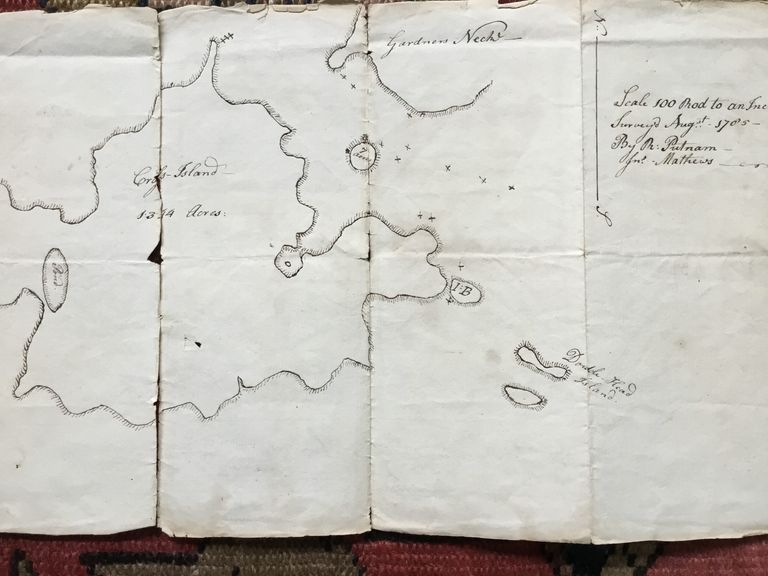 Gardners Neck
N.
Scale 100 Rod to an Inc
Survey'd Augst. 1785
By R: Putnam
Jno. Mathews
Cross Island
1314 Acres:
I:B
Double Head
Island.
S